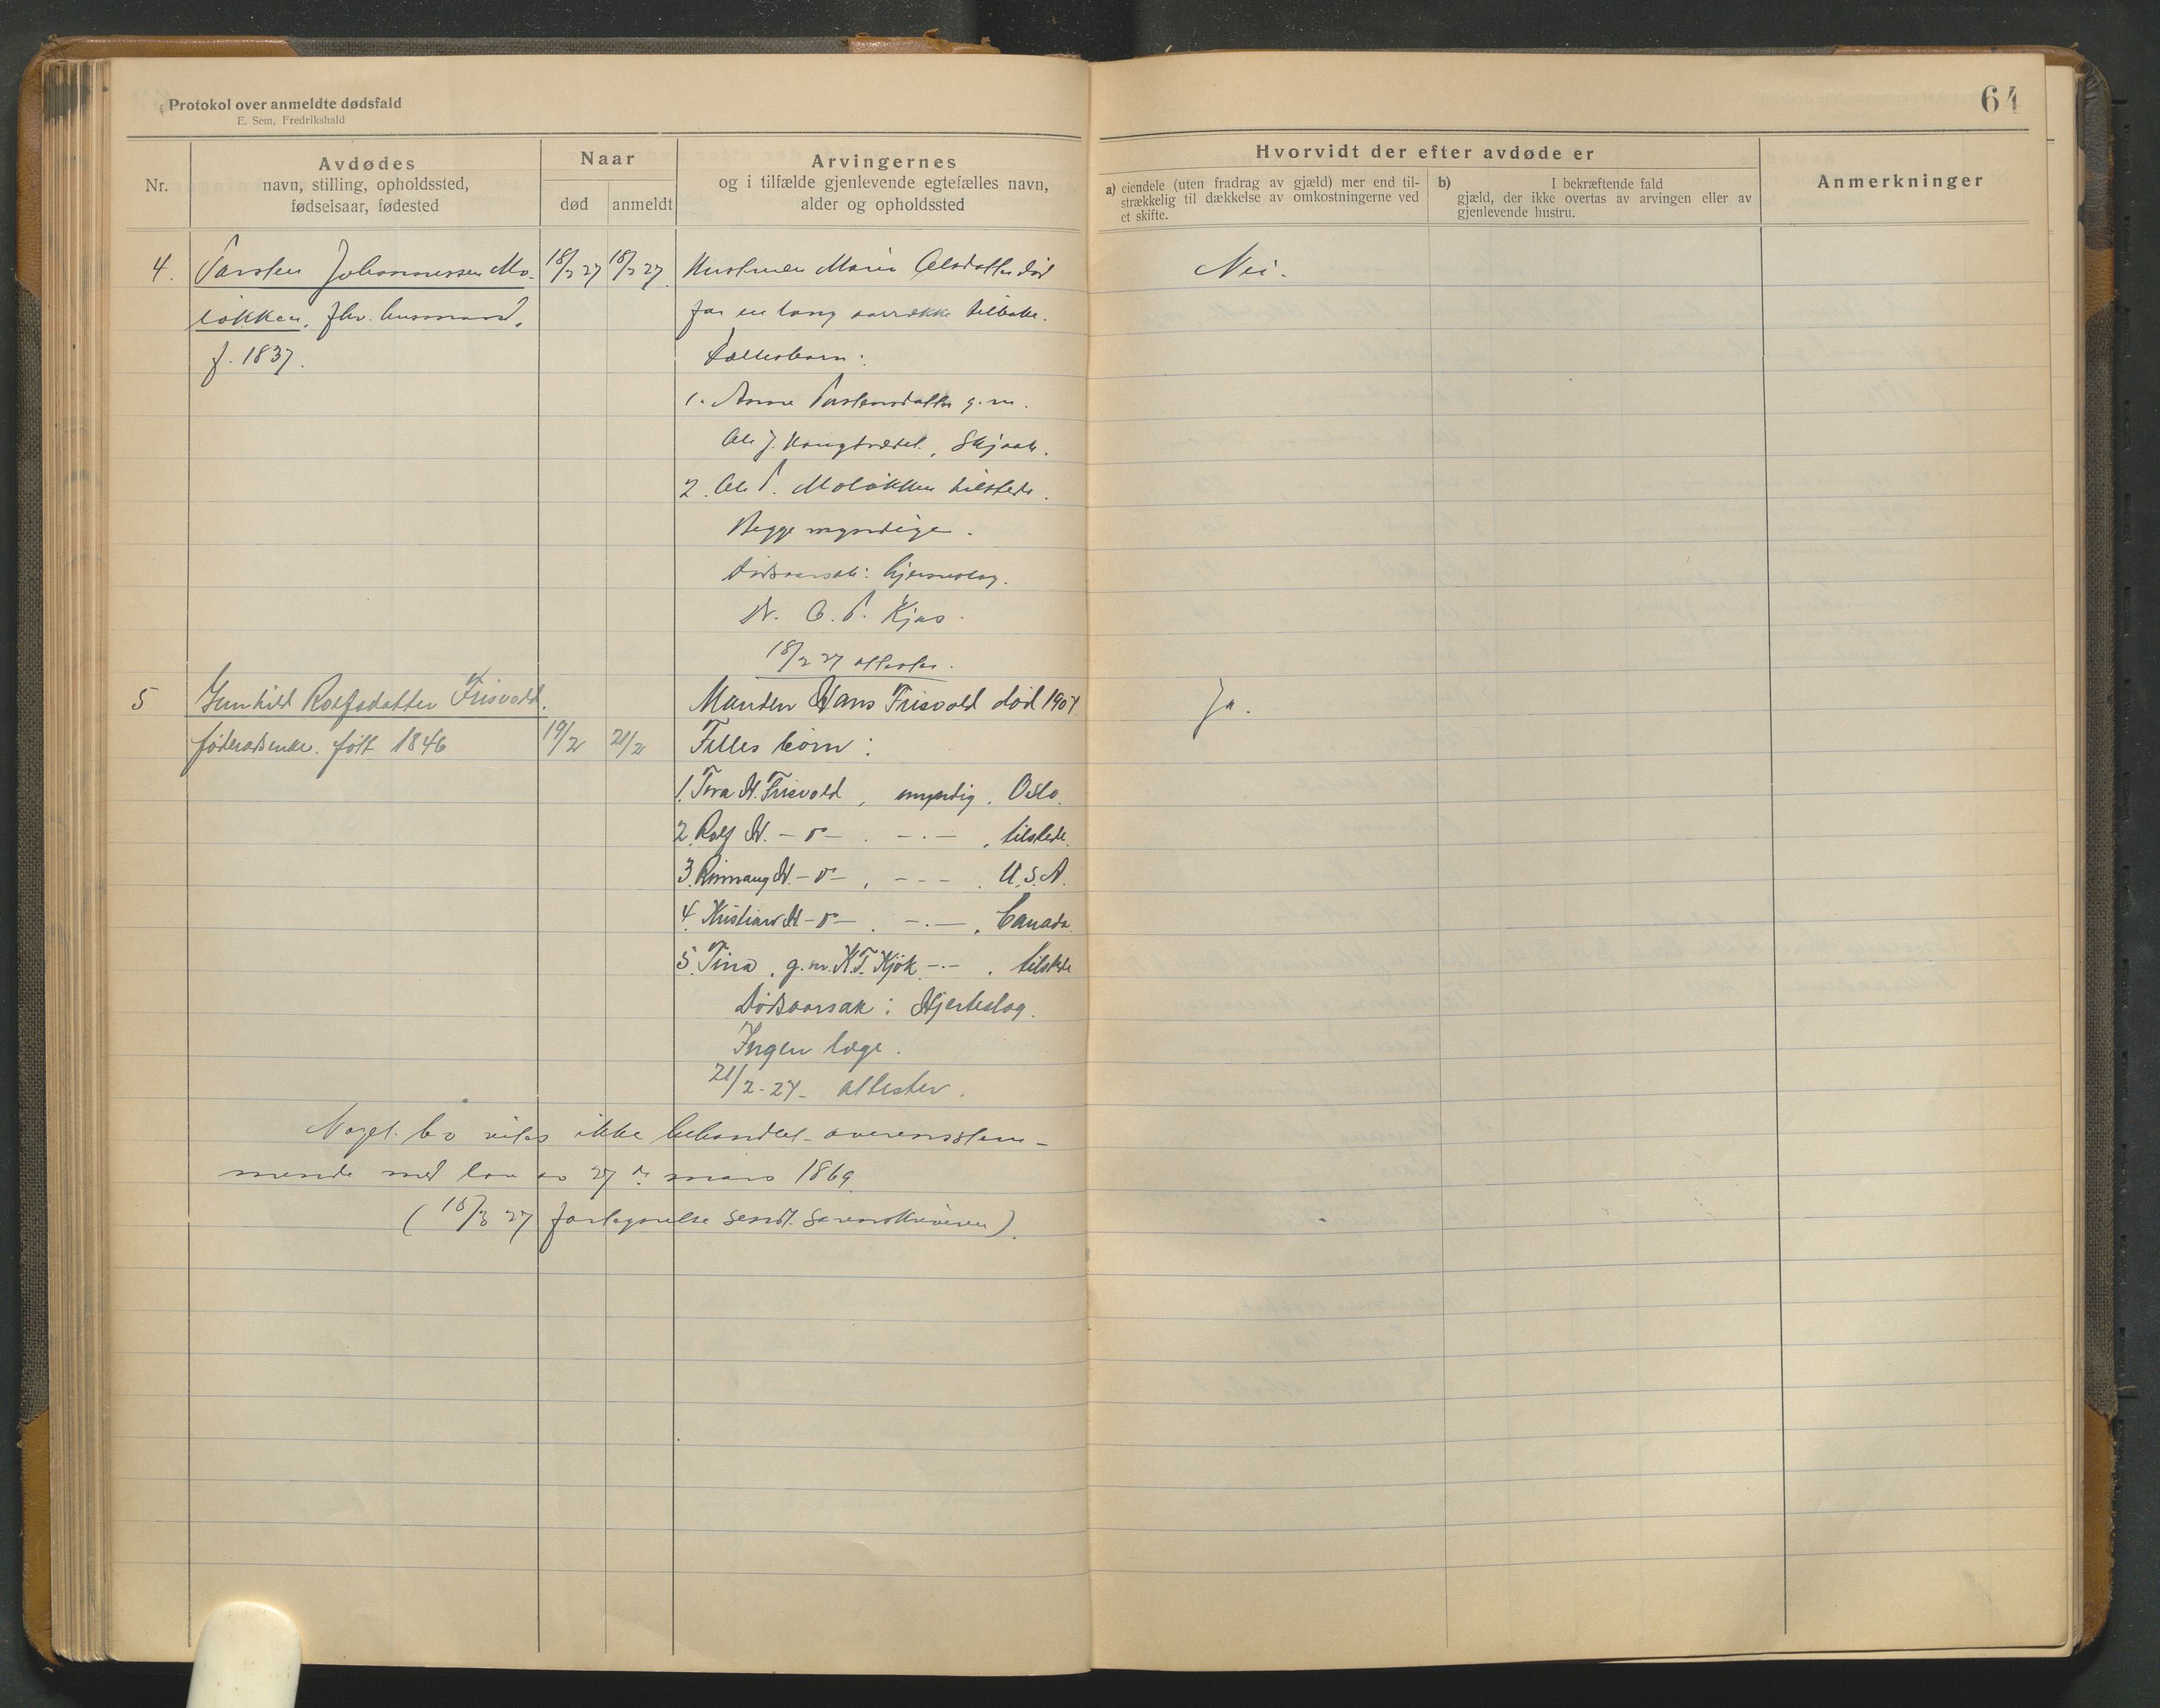 Protokol over anmeldte dødsfald
E. Sem, Fredrikshald
64
Nr.
Avdødes
navn, stilling, opholdssted,
fødselsaar, fødested
Naar
død
anmeldt
Arvingernes
og i tilfælde gjenlevende egtefælles navn,
alder og opholdssted
Hvorvidt der efter avdøde er
a) eiendele (uten fradrag av gjæld) mer end til-
strækkelig til dækkelse av omkostningerne ved
et skifte.
b) I bekræftende fald
gjæld, der ikke overtas av arvingen eller av
gjenlevende hustru.
Anmerkninger
4. Torsten Johannessen Mo- 18/2 27 18/2 27. Hustruen Marie Olsdatter død Nei.
løkken, fhv. husmand, for en lang aarrække tilbake.
f. 1837. Fællesbarn:
1. Anne Torstensdatter g.m.
Ole J. Haugtrædet, Skjaak.
2. Ole T. Moløkken tilstede.
Begge myndige.
Dødsaarsak: hjerneslag.
Dr. O. T. Kjos.
18/2 27 attester.
5 Gunhild Rolfsdatter Frisvold. Manden Hans Frisvold død 1904 Ja.
føderaadsenke. født 1846 19/2 21/2 Felles børn:
1. Tora H. Frisvold, myndig, Oslo.
2. Rolf H. - " - . - . - , tilstede.
3. Rønnaug H. - " - , - - - . U.S.A.
4. Kristian H - " - . - . - , Canada.
5. Tina, g.m. K.T. Kjøk - . - . tilstede
Dødsaarsak: Hjerteslag.
Ingen læge.
21/2-27- attester.
Noget bo vites ikke behandlet overensstem-
mende med lov av 27de mars 1869.
(18/3 27 fortegnelse sendt sorenskriveren).